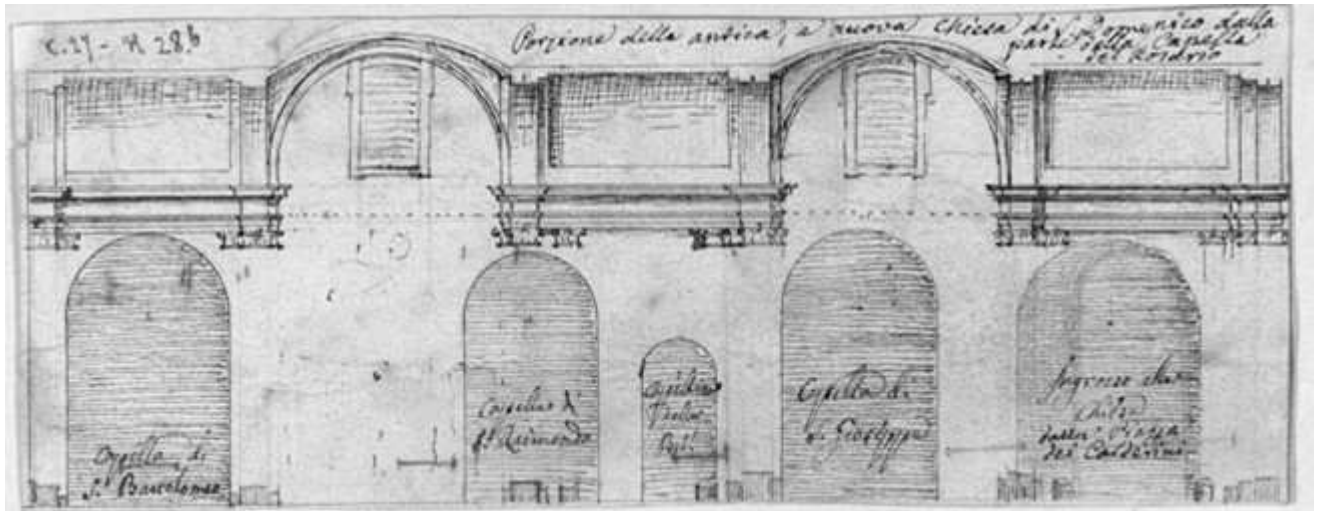 C. 27 - N 28.b
Porzione della antica, e nuova Chiesa di S. Domenico dalla
parte della Capella
del Rosario
Capella di
S. Bartolomeo
Capella di
S. Raimondo
Capella di
S. Gioseppe
Ingresso alla
Chiesa
dalla Piazza
dei Calderini